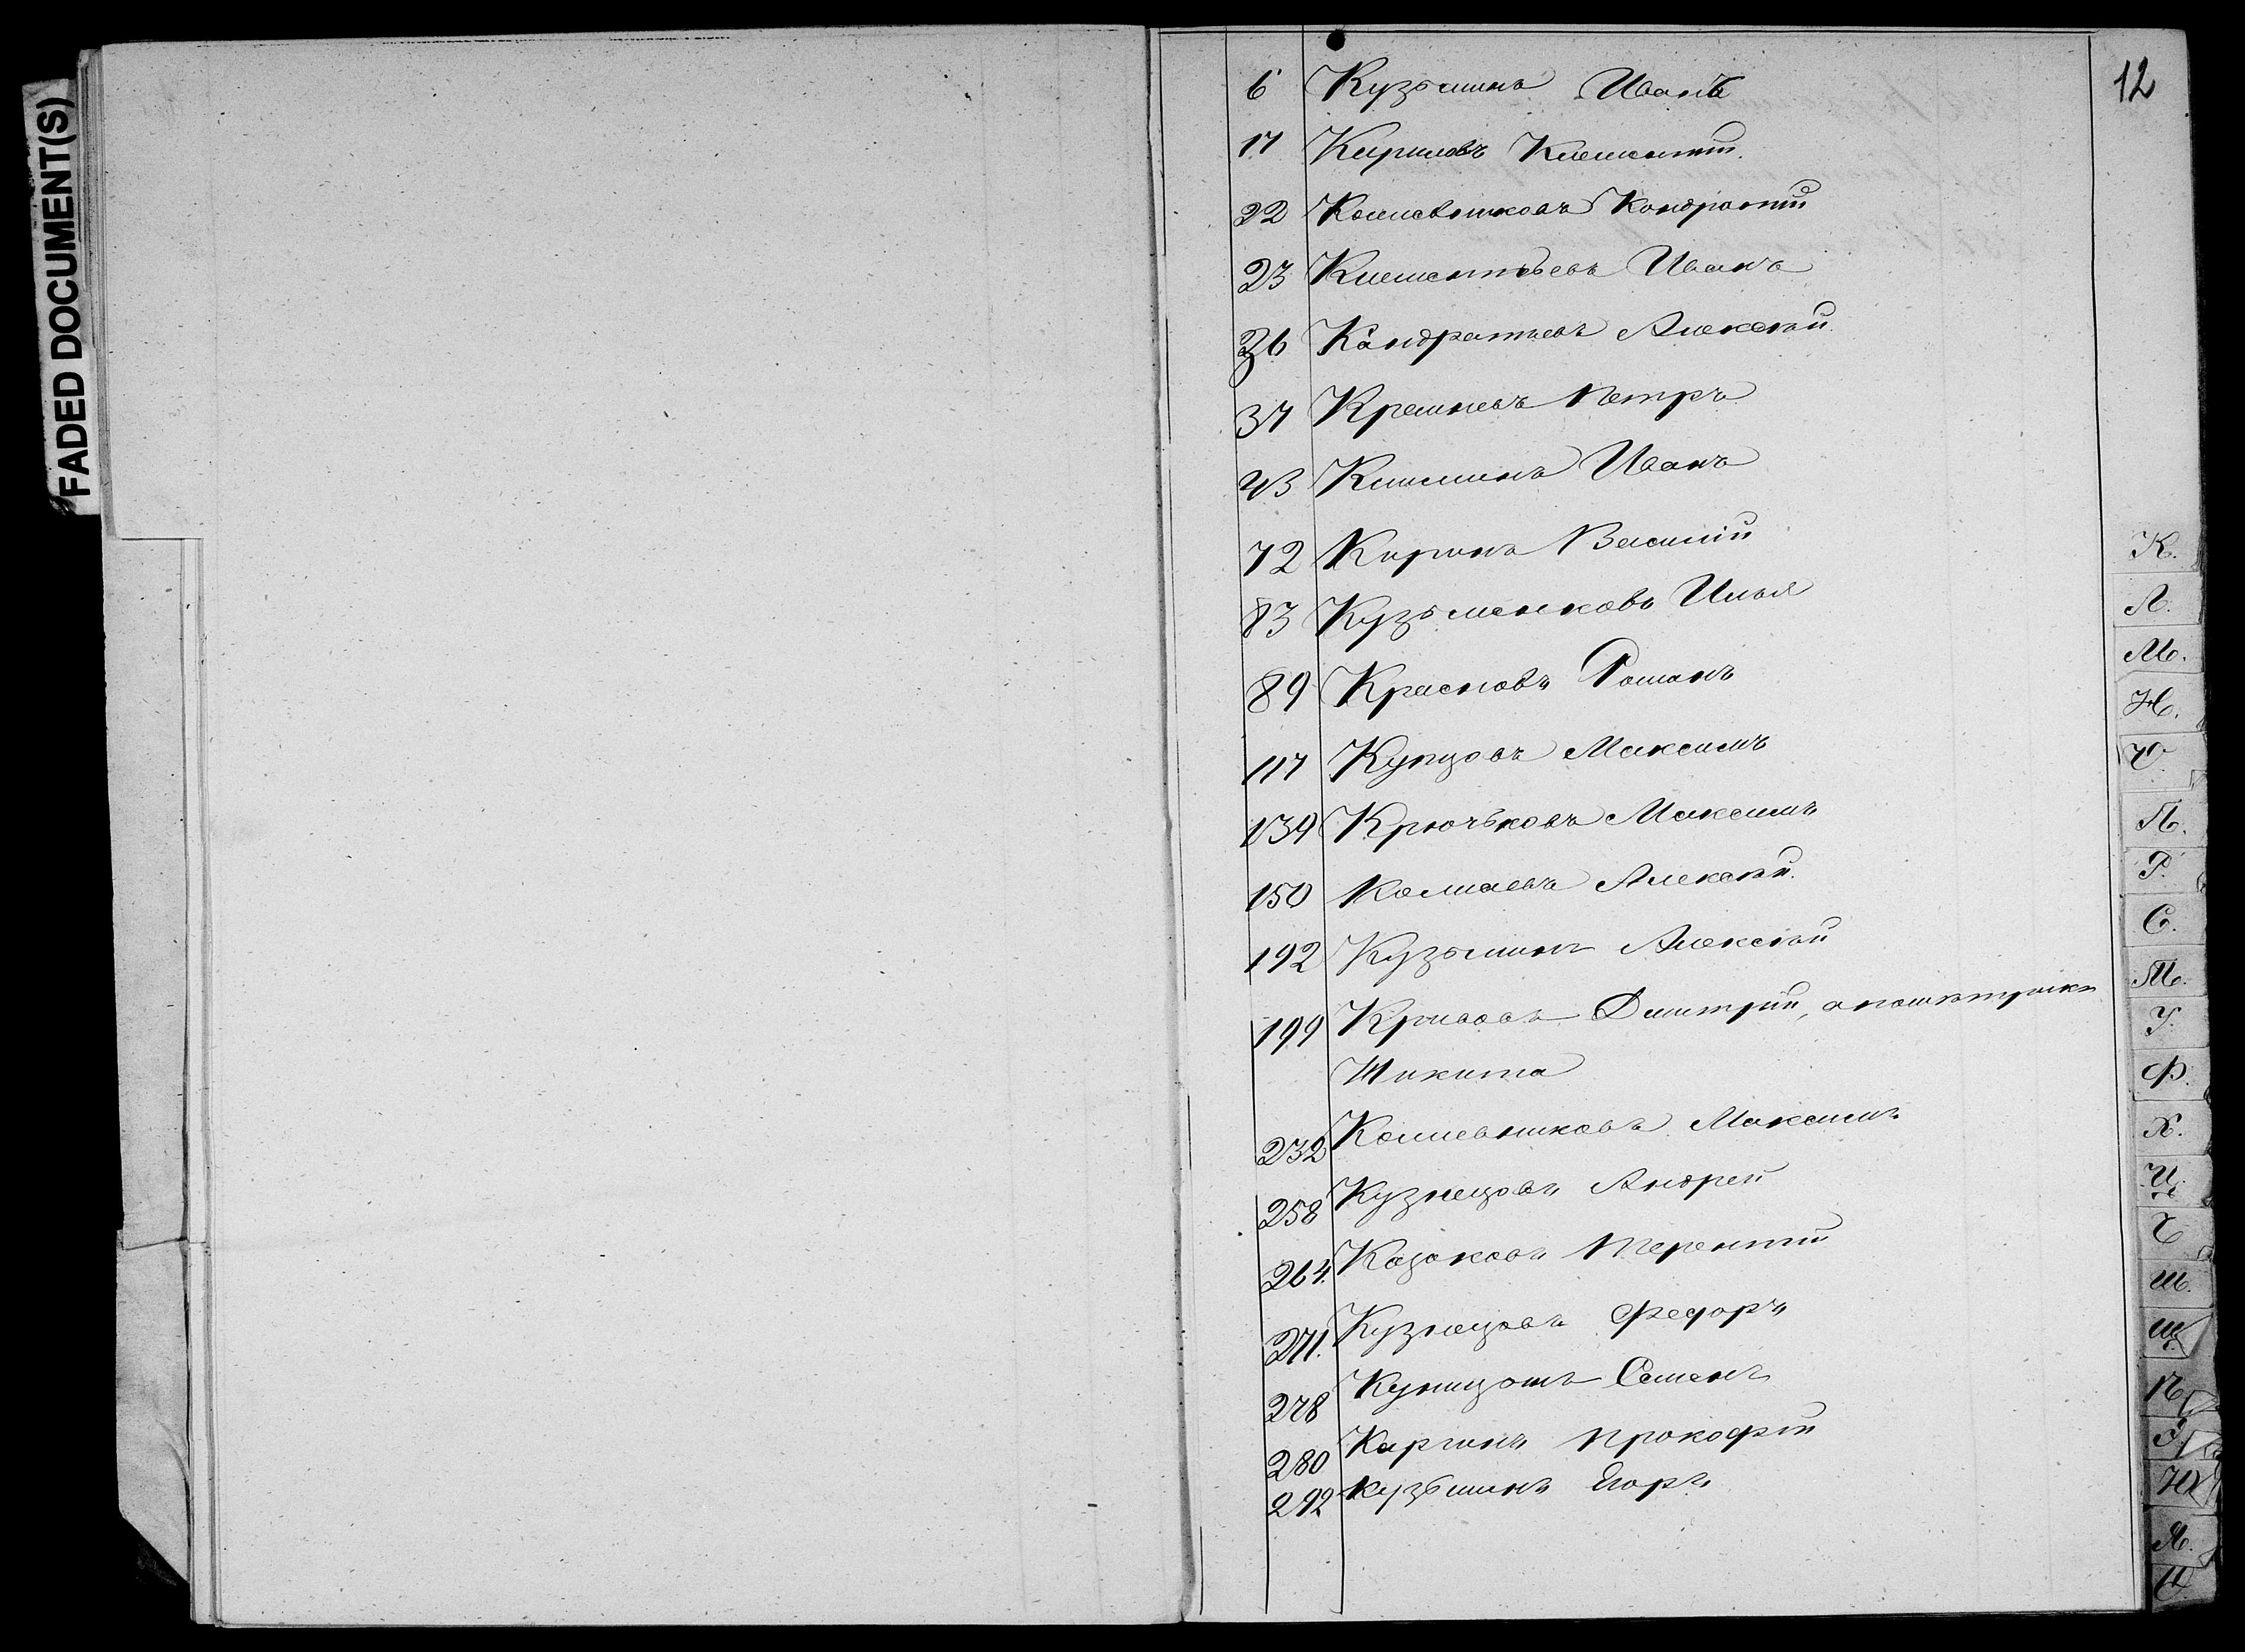 FADED DOCUMENT(S)
12
6 Кузьминъ Иванъ
17 Кириловъ Клементий
22 Колмсвниковъ Кондратий
23 Клементьевъ Иванъ
36 Кандратьевъ Алексѣй
37 Кремневъ Петръ
43 Климинъ Иванъ
72 Киринъ Василій
83 Кузьменковъ Илья
89 Красновъ Романъ
117 Купцовъ Максимъ
139 Крючьковъ Максимъ
150 Колмаевъ Алексѣй
192 Кузьминъ Алексѣй
199 Кривовъ Дмитрій,
Никита
232 Колмевниковъ Максимъ
258 Кузнецовъ Андрей
264. Казаковъ Терентий
271. Кузнецовъ Федоръ
278 Семенъ
280 Каргинъ Прокофій
292 Кузьминъ Егоръ
К.
Л.
М.
Н.
О.
П.
Р.
С.
Т.
У.
Ф.
Х.
Ц.
Ч.
Ш.
Щ.
Ю.
Я.